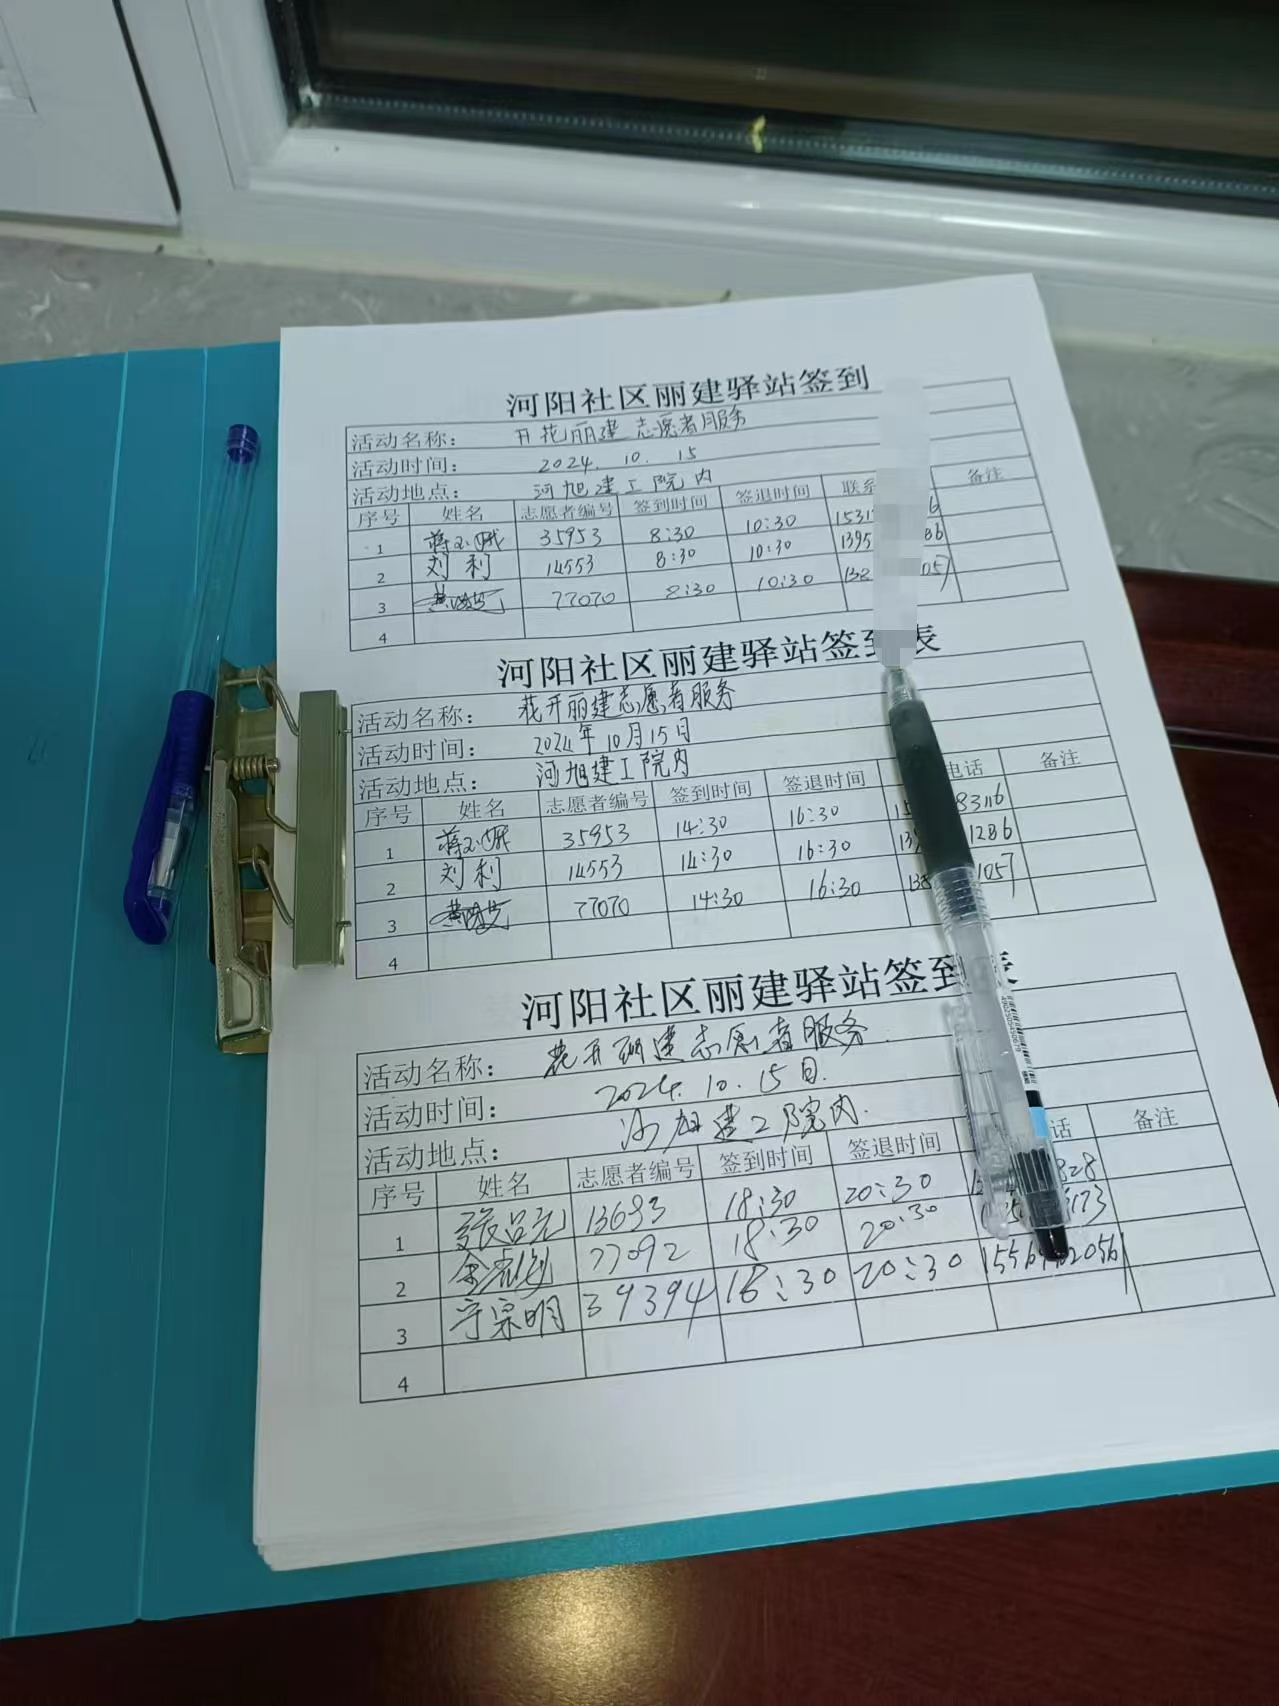 河阳社区丽建驿站签到
活动名称： 开花丽建志愿者服务
活动时间： 2024. 10. 15
活动地点： 河旭建工院内
序号 姓名 志愿者编号 签到时间 签退时间 联系 备注
1 35953 8:30 10:30
2 刘利 14553 8:30 10:30
3 77070 8:30 10:30
4
河阳社区丽建驿站签到表
活动名称： 花开丽建志愿者服务
活动时间： 2024年10月15日
活动地点： 河旭建工院内
序号 姓名 志愿者编号 签到时间 签退时间 电话 备注
1 35953 14:30 16:30 83116
2 刘利 14553 14:30 16:30 1286
3 77070 14:30 16:30 1057
4
河阳社区丽建驿站签到表
活动名称： 花开丽建志愿者服务.
活动时间： 2024. 10. 15日.
活动地点： 河旭建工院内.
序号 姓名 志愿者编号 签到时间 签退时间 话 备注
1 13693 18:30 20:30 828
2 77092 18:30 20:30 173
3 宗明 39394 18:30 20:30
4